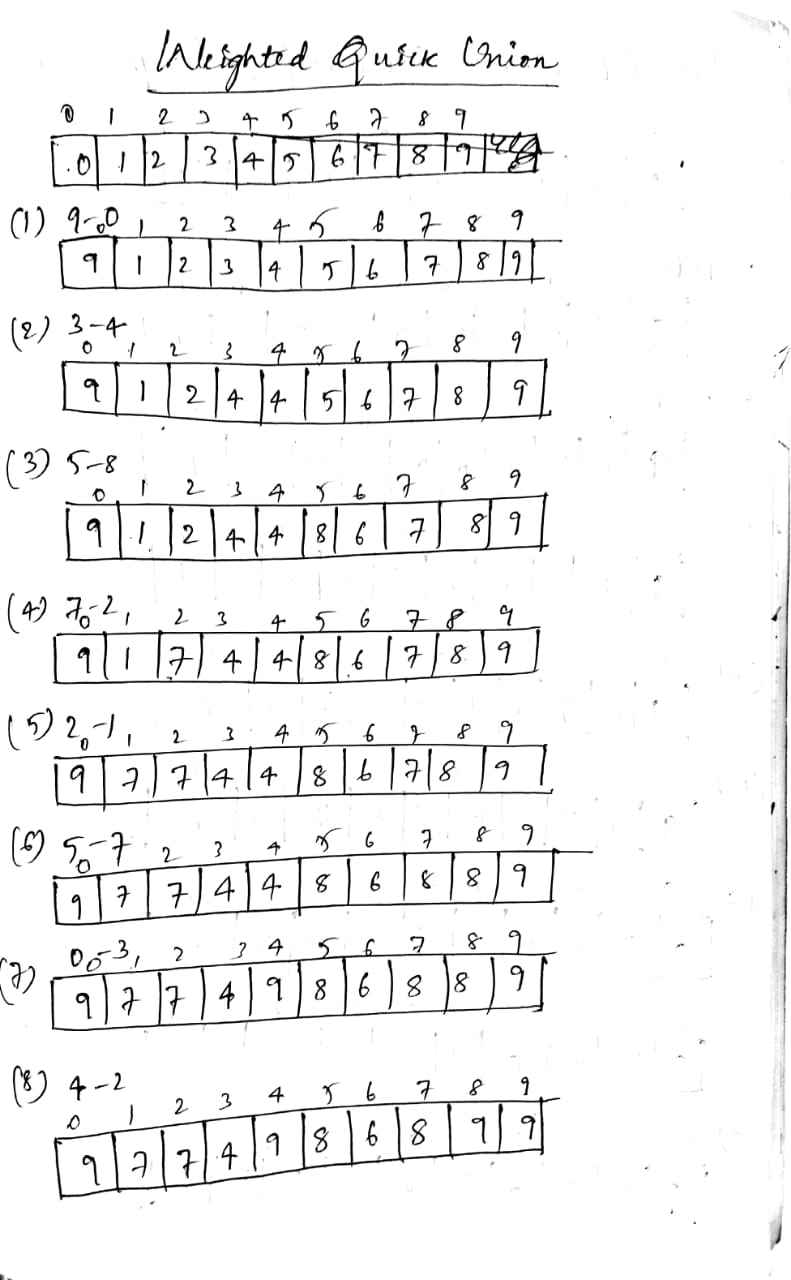 Weighted Quick Union
0 1 2 3 4 5 6 7 8 9
0 1 2 3 4 5 6 7 8 9
(1) 9-0
0 1 2 3 4 5 6 7 8 9
9 1 2 3 4 5 6 7 8 9
(2) 3-4
0 1 2 3 4 5 6 7 8 9
9 1 2 4 4 5 6 7 8 9
(3) 5-8
0 1 2 3 4 5 6 7 8 9
9 1 2 4 4 8 6 7 8 9
(4) 7-2
0 1 2 3 4 5 6 7 8 9
9 1 7 4 4 8 6 7 8 9
(5) 2-1
0 1 2 3 4 5 6 7 8 9
9 7 7 4 4 8 6 7 8 9
(6) 5-7
0 2 3 4 5 6 7 8 9
9 7 7 4 4 8 6 8 8 9
(7) 0-3
0 1 2 3 4 5 6 7 8 9
9 7 7 4 9 8 6 8 8 9
(8) 4-2
0 1 2 3 4 5 6 7 8 9
9 7 7 4 9 8 6 8 9 9